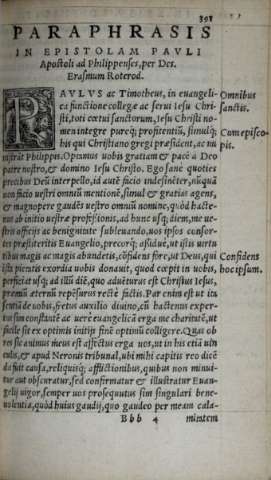 391
PARAPHRASIS
IN EPISTOLAM PAVLI
Apostoli ad Philippenses, per Des.
Erasmum Roterod.
PAVLVS ac Timotheus, in euangeli-
ca functione collegæ ac serui Iesu Chri-
sti, toti cœtui sanctorum, Iesu Christi no-
men integre pureq; profitentiũ, simulq́;
his qui Christiano gregi præsident, ac mi
nistrãt Philippis. Optamus uobis gratiam & pacẽ a Deo
patre nostro, & domino Iesu Christo. Ego sane quoties
precibus Deũ interpello, id autẽ facio indesinẽter, nũquã
non facio uestri omniũ mentionẽ, simul & gratias agens,
& magnopere gaudẽs uestro omniũ nomine, quòd hacte-
nus ab initio uestræ professionis, ad hunc usq; diem, me ue-
stris officijs ac benignitate subleuando, uos ipsos consor-
tes præstiteritis Euangelio, precorq́; assiduè, ut istis uirtu
tibus magis ac magis abundetis, cõfidens fore, ut Deus, qui
ista pientis exordia uobis donauit, quod cœpit in uobis,
perficiat usq; ad illũ diẽ, quo aduẽturus est Christus Iesus,
præmiũ æternũ repẽsurus rectè factis. Par enim est ut ita
sentiã de uobis, fretus auxilio diuino, cũ hactenus exper-
tus sim constãtẽ ac uerè euangelicã erga me charitatẽ, ut
facile sit ex optimis initijs finẽ optimũ colligere. Quas ob
res sic animus meus est affectus erga uos, ut in his etiã uin
culis, & apud Neronis tribunal, ubi mihi capitis reo dicẽ
da fuit causa, reliquisq́; afflictionibus, quibus non minui-
tur aut obscuratur, sed confirmatur & illustratur Euan-
gelij uigor, semper uos prosequutus sim singulari bene-
uolentia, quòd huius gaudij, quo gaudeo per meam cala-
Bbb 4 mitatem
Omnibus
sanctis.
Cum episco-
pis.
Confidens
hoc ipsum.